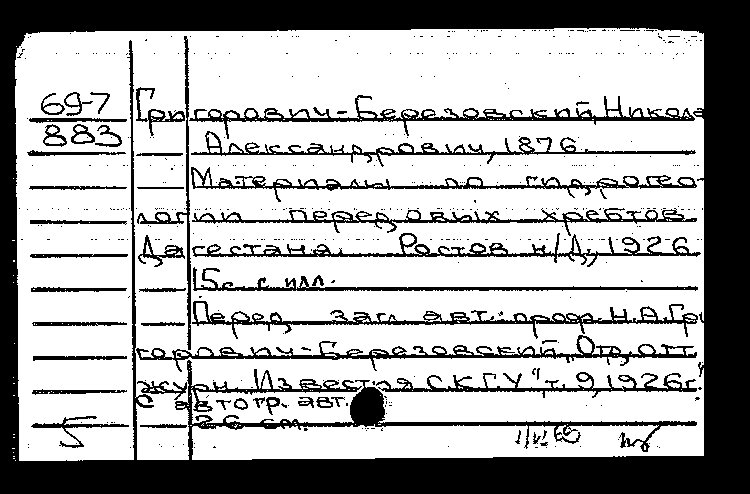 69-7 Григорович-Березовский, Никола
883 Александрович, 1876.
Материалы по гидрогео-
логии передовых хребтов
Дагестана. Ростов н/Д., 1926
15с. с илл.
Перед загл. авт.: проф. Н.А.Гри
горович-Березовский. Отд. отт.
журн. "Известия СКГУ", т. 9, 1926г.
С автогр. авт.
26 см.
5